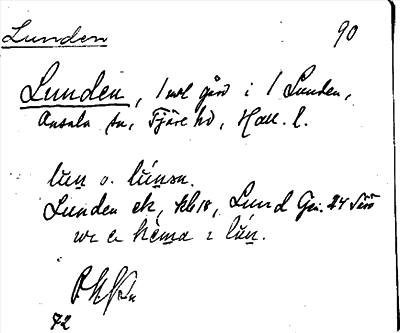 Lunden 90
Lunden, 1 mtl gård i 1 Lunden,
Onsala sn, Fjäre hd, Hall. l.
lun̲ o. lún̲sn.
Lunden ek, kb 18, Lund Gen. 24
hèma i lún̲.
72